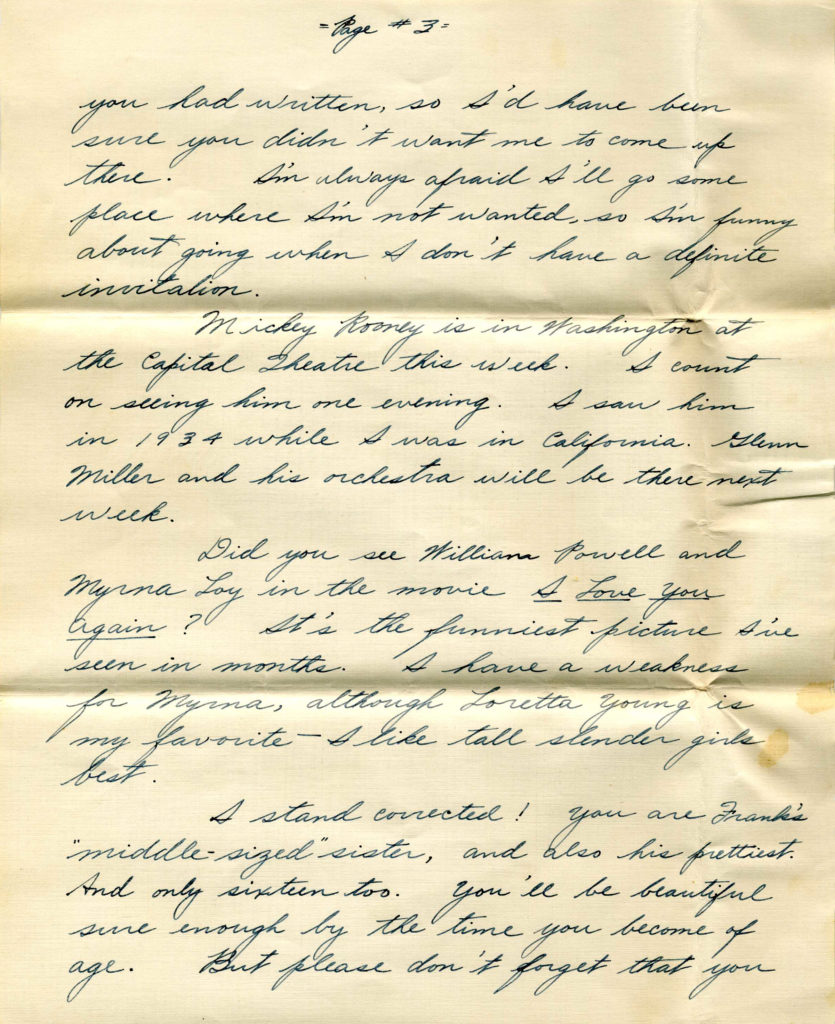 = Page # 3 =
you had written, so I'd have been
sure you didn't want me to come up
there. I'm always afraid I'll go some
place where I'm not wanted, so I'm funny
about going when I don't have a definite
invitation.
Mickey Rooney is in Washington at
the Capital Theatre this week. I count
on seeing him one evening. I saw him
in 1934 while I was in California. Glenn
Miller and his orchestra will be there next
week.
Did you see William Powell and
Myrna Loy in the movie I Love You
Again? It's the funniest picture I've
seen in months. I have a weakness
for Myrna, although Loretta Young is
my favorite — I like tall slender girls
best.
I stand corrected! You are Frank's
"middle-sized" sister, and also his prettiest.
And only sixteen too. You'll be beautiful
sure enough by the time you become of
age. But please don't forget that you